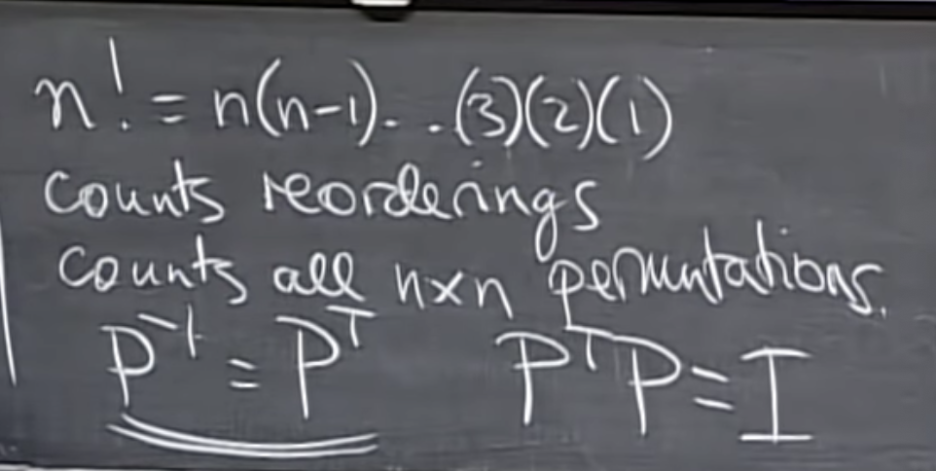 n! = n(n-1)...(3)(2)(1)
counts reorderings
counts all n×n permutations.
P⁻¹ = Pᵀ PᵀP = I